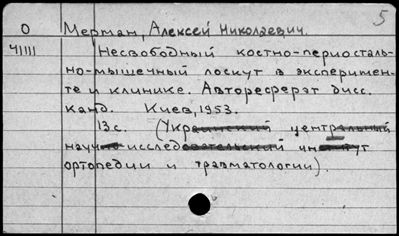 5
О Мерман, Алексей Николаевич.
41111 Несвободный костно-периосталь-
но-мышечный лоскут в эксперимен-
те и клинике. Автореферат дисс.
канд. Киев, 1953.
13 с. (Украинский центральный
научно-исследовательский институт
ортопедии и травматологии).